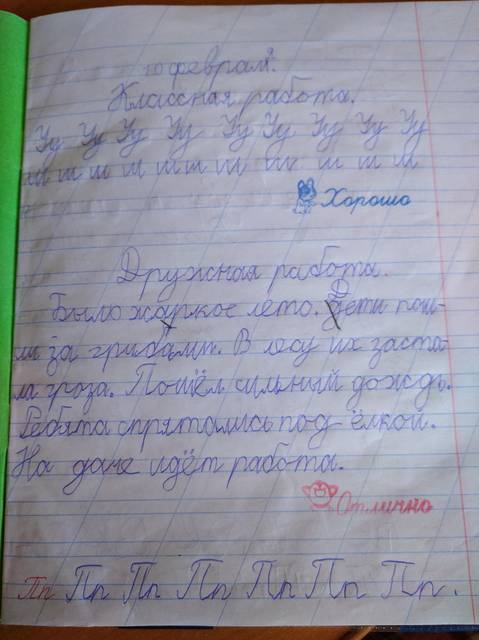 10 февраля.
Классная работа.
Уу Уу Уу Уу Уу Уу Уу Уу Уу
ш ш ш ш ш ш ш ш ш ш ш
Хорошо
Дружная работа.
Было жаркое лето. Дети пош-
ли за грибами. В лесу их заста-
ла гроза. Пошёл сильный дождь.
Ребята спрятались под ёлкой.
На даче идёт работа.
Отлично
Пп Пп Пп Пп Пп Пп Пп.